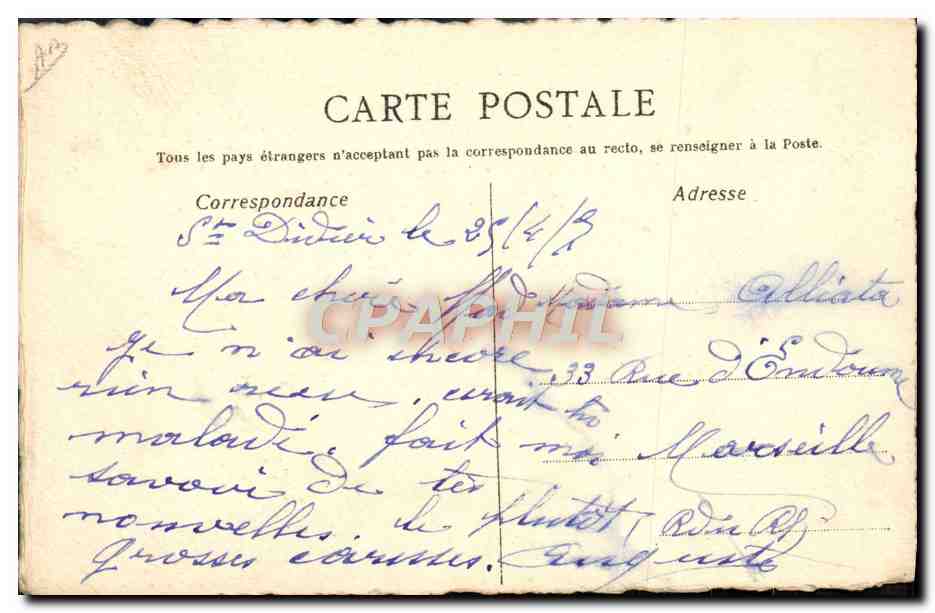 CARTE POSTALE
Tous les pays étrangers n'acceptant pas la correspondance au recto, se renseigner à la Poste.
Correspondance
Adresse
St Didier le 25/4/
Ma chère
je n'ai encore
rien reçu, serait tu
maladi. fait moi
savoir de tes
nouvelles. le plutôt,
grosses caresses. Auguste
Madame Alliata
33 Rue d'Endoume
Marseille
Bdu Rh
CPAPHIL